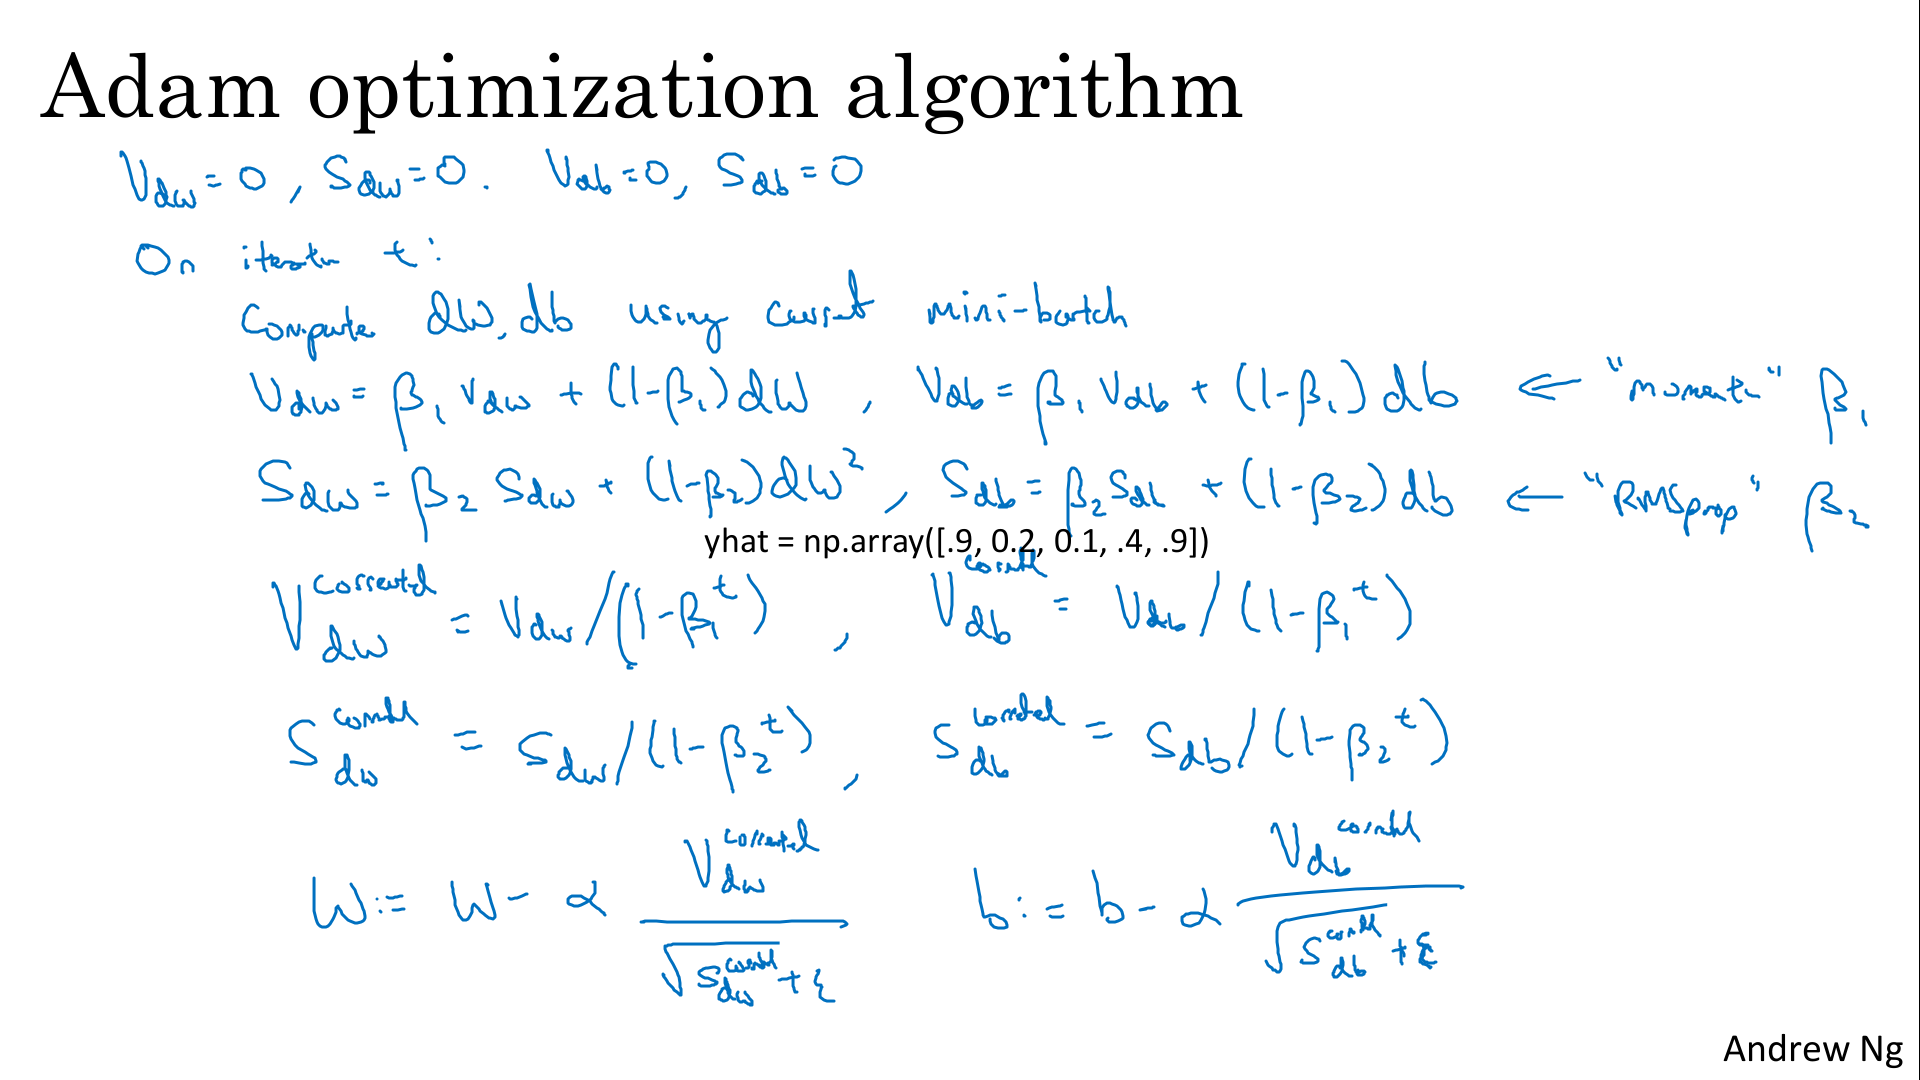 Adam optimization algorithm
V_dw = 0, S_dw = 0. V_db = 0, S_db = 0
On iteratn t:
Compute dW, db using current mini-batch
V_dw = β₁ V_dw + (1-β₁) dW , V_db = β₁ V_db + (1-β₁) db ← "moment" β₁
S_dw = β₂ S_dw + (1-β₂) dW² , S_db = β₂ S_db + (1-β₂) db ← "RMSprop" β₂
yhat = np.array([.9, 0.2, 0.1, .4, .9])
V_dw^corrected = V_dw / (1-β₁^t) , V_db^corrected = V_db / (1-β₁^t)
S_dw^corrected = S_dw / (1-β₂^t) , S_db^corrected = S_db / (1-β₂^t)
W := W - α V_dw^corrected / (√S_dw^corrected + ε) b := b - α V_db^corrected / (√S_db^corrected + ε)
Andrew Ng